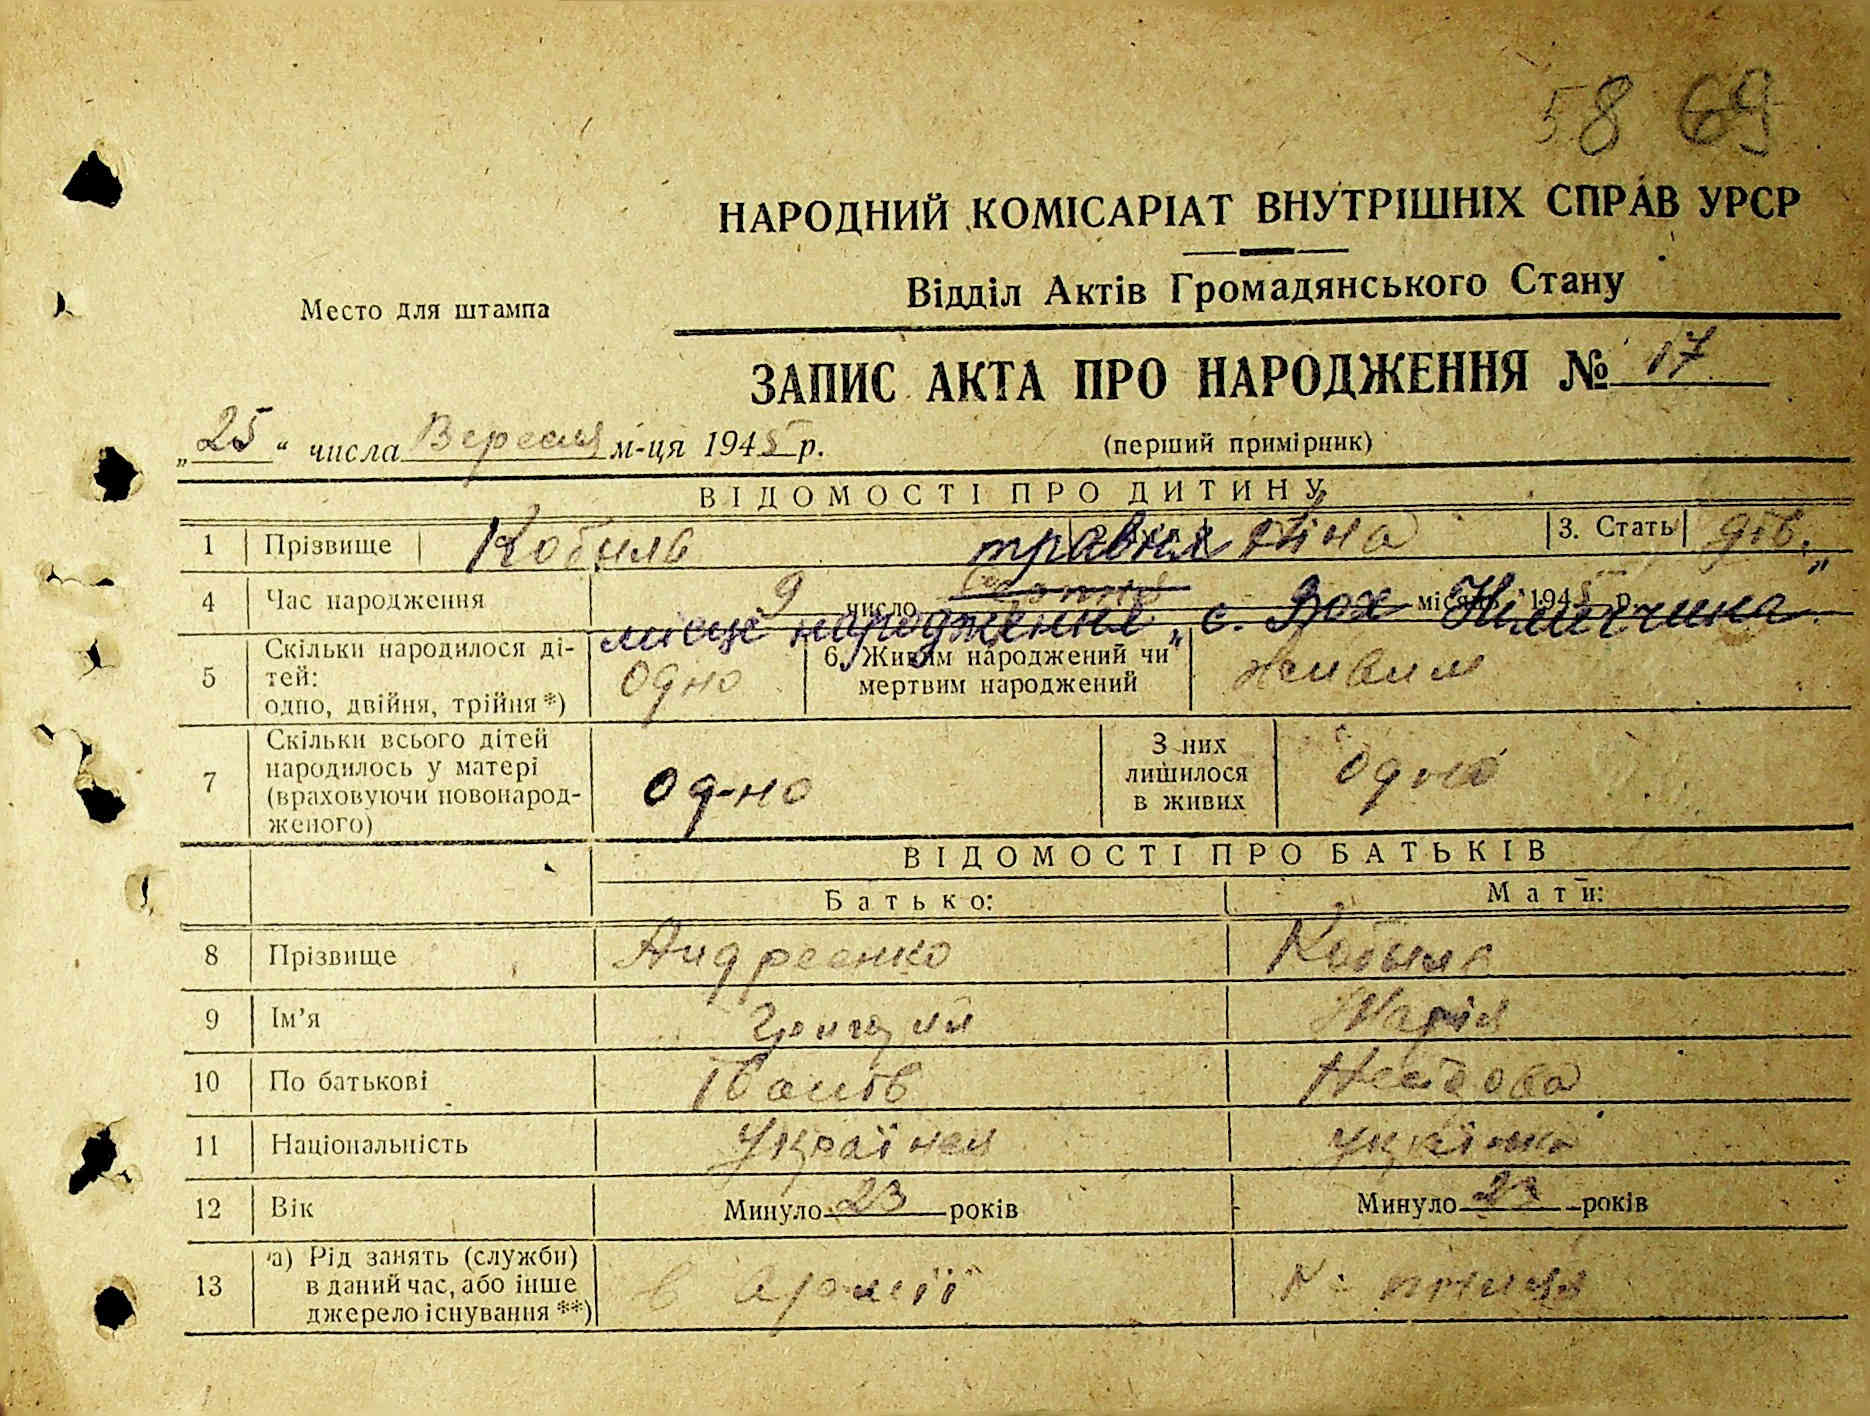 58 69
НАРОДНИЙ КОМІСАРІАТ ВНУТРІШНІХ СПРАВ УРСР
Відділ Актів Громадянського Стану
Место для штампа
ЗАПИС АКТА ПРО НАРОДЖЕННЯ № 17
„25“ числа Вересня м-ця 1945 р.
(перший примірник)
ВІДОМОСТІ ПРО ДИТИНУ
1 Прізвище Кобиль Ніна 3. Стать дів.
травня
4 Час народження 9 число місяць 1945 р.
місце народження „с. Зох Німеччина”
5 Скільки народилося ді-
тей:
одно, двійня, трійня *) одно 6. Живим народжений чи
мертвим народжений живим
7 Скільки всього дітей
народилось у матері
(враховуючи новонарод-
женого) одно З них
лишилося
в живих одно
ВІДОМОСТІ ПРО БАТЬКІВ
Батько: Мати:
8 Прізвище Андреенко Кобиль
9 Ім’я Григорий Марія
10 По батькові Іванів
11 Національність Українец українка
12 Вік Минуло 23 років Минуло 23 років
13 а) Рід занять (служби)
в даний час, або інше
джерело існування **) в Армії